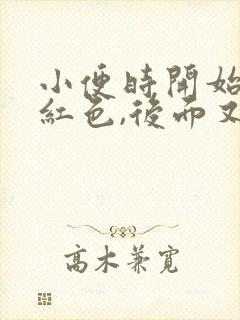 小便時開始
紅色,後而又
高木兼寬